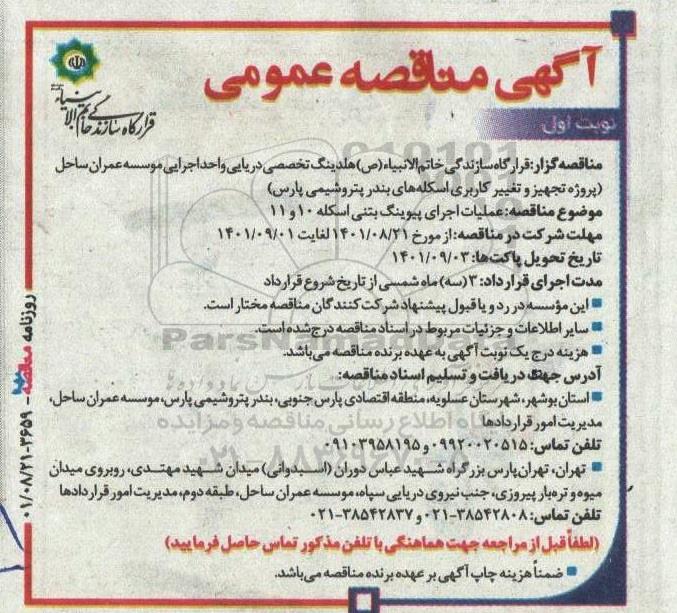 آگهی مناقصه عمومی
قرارگاه سازندگی خاتم الانبیاء
نوبت اول
مناقصه‌گزار: قرارگاه سازندگی خاتم الانبیاء (ص) هلدینگ تخصصی دریایی واحد اجرایی موسسه عمران ساحل
(پروژه تجهیز و تغییر کاربری اسکله‌های بندر پتروشیمی پارس)
موضوع مناقصه: عملیات اجرای پیوینگ بتنی اسکله ۱۰ و ۱۱
مهلت شرکت در مناقصه: از مورخ ۱۴۰۱/۰۸/۲۱ لغایت ۱۴۰۱/۰۹/۰۱
تاریخ تحویل پاکت‌ها: ۱۴۰۱/۰۹/۰۳
مدت اجرای قرارداد: ۳ (سه) ماه شمسی از تاریخ شروع قرارداد
این مؤسسه در رد و یا قبول پیشنهاد شرکت کنندگان مناقصه مختار است.
سایر اطلاعات و جزئیات مربوط در اسناد مناقصه درج شده است.
ParsNamadData
هزینه درج یک نوبت آگهی به عهده برنده مناقصه می‌باشد.
آدرس جهت دریافت و تسلیم اسناد مناقصه:
استان بوشهر، شهرستان عسلویه، منطقه اقتصادی پارس جنوبی، بندر پتروشیمی پارس، موسسه عمران ساحل،
مدیریت امور قراردادها
پایگاه اطلاع رسانی مناقصه و مزایده
تلفن تماس: ۰۹۹۲۰۰۲۰۵۱۵ و ۰۹۱۰۳۹۵۸۱۹۵
تهران، تهران پارس بزرگراه شهید عباس دوران (اسبدوانی) میدان شهید مهتدی، روبروی میدان
میوه و تره‌بار پیروزی، جنب نیروی دریایی سپاه، موسسه عمران ساحل، طبقه دوم، مدیریت امور قراردادها
تلفن تماس: ۰۲۱-۳۸۵۴۲۸۰۸ و ۰۲۱-۳۸۵۴۲۸۳۷
(لطفاً قبل از مراجعه جهت هماهنگی با تلفن مذکور تماس حاصل فرمایید)
ضمناً هزینه چاپ آگهی بر عهده برنده مناقصه می‌باشد.
روزنامه مناقصه - ۳۶۵۹-۰۱/۰۸/۲۱